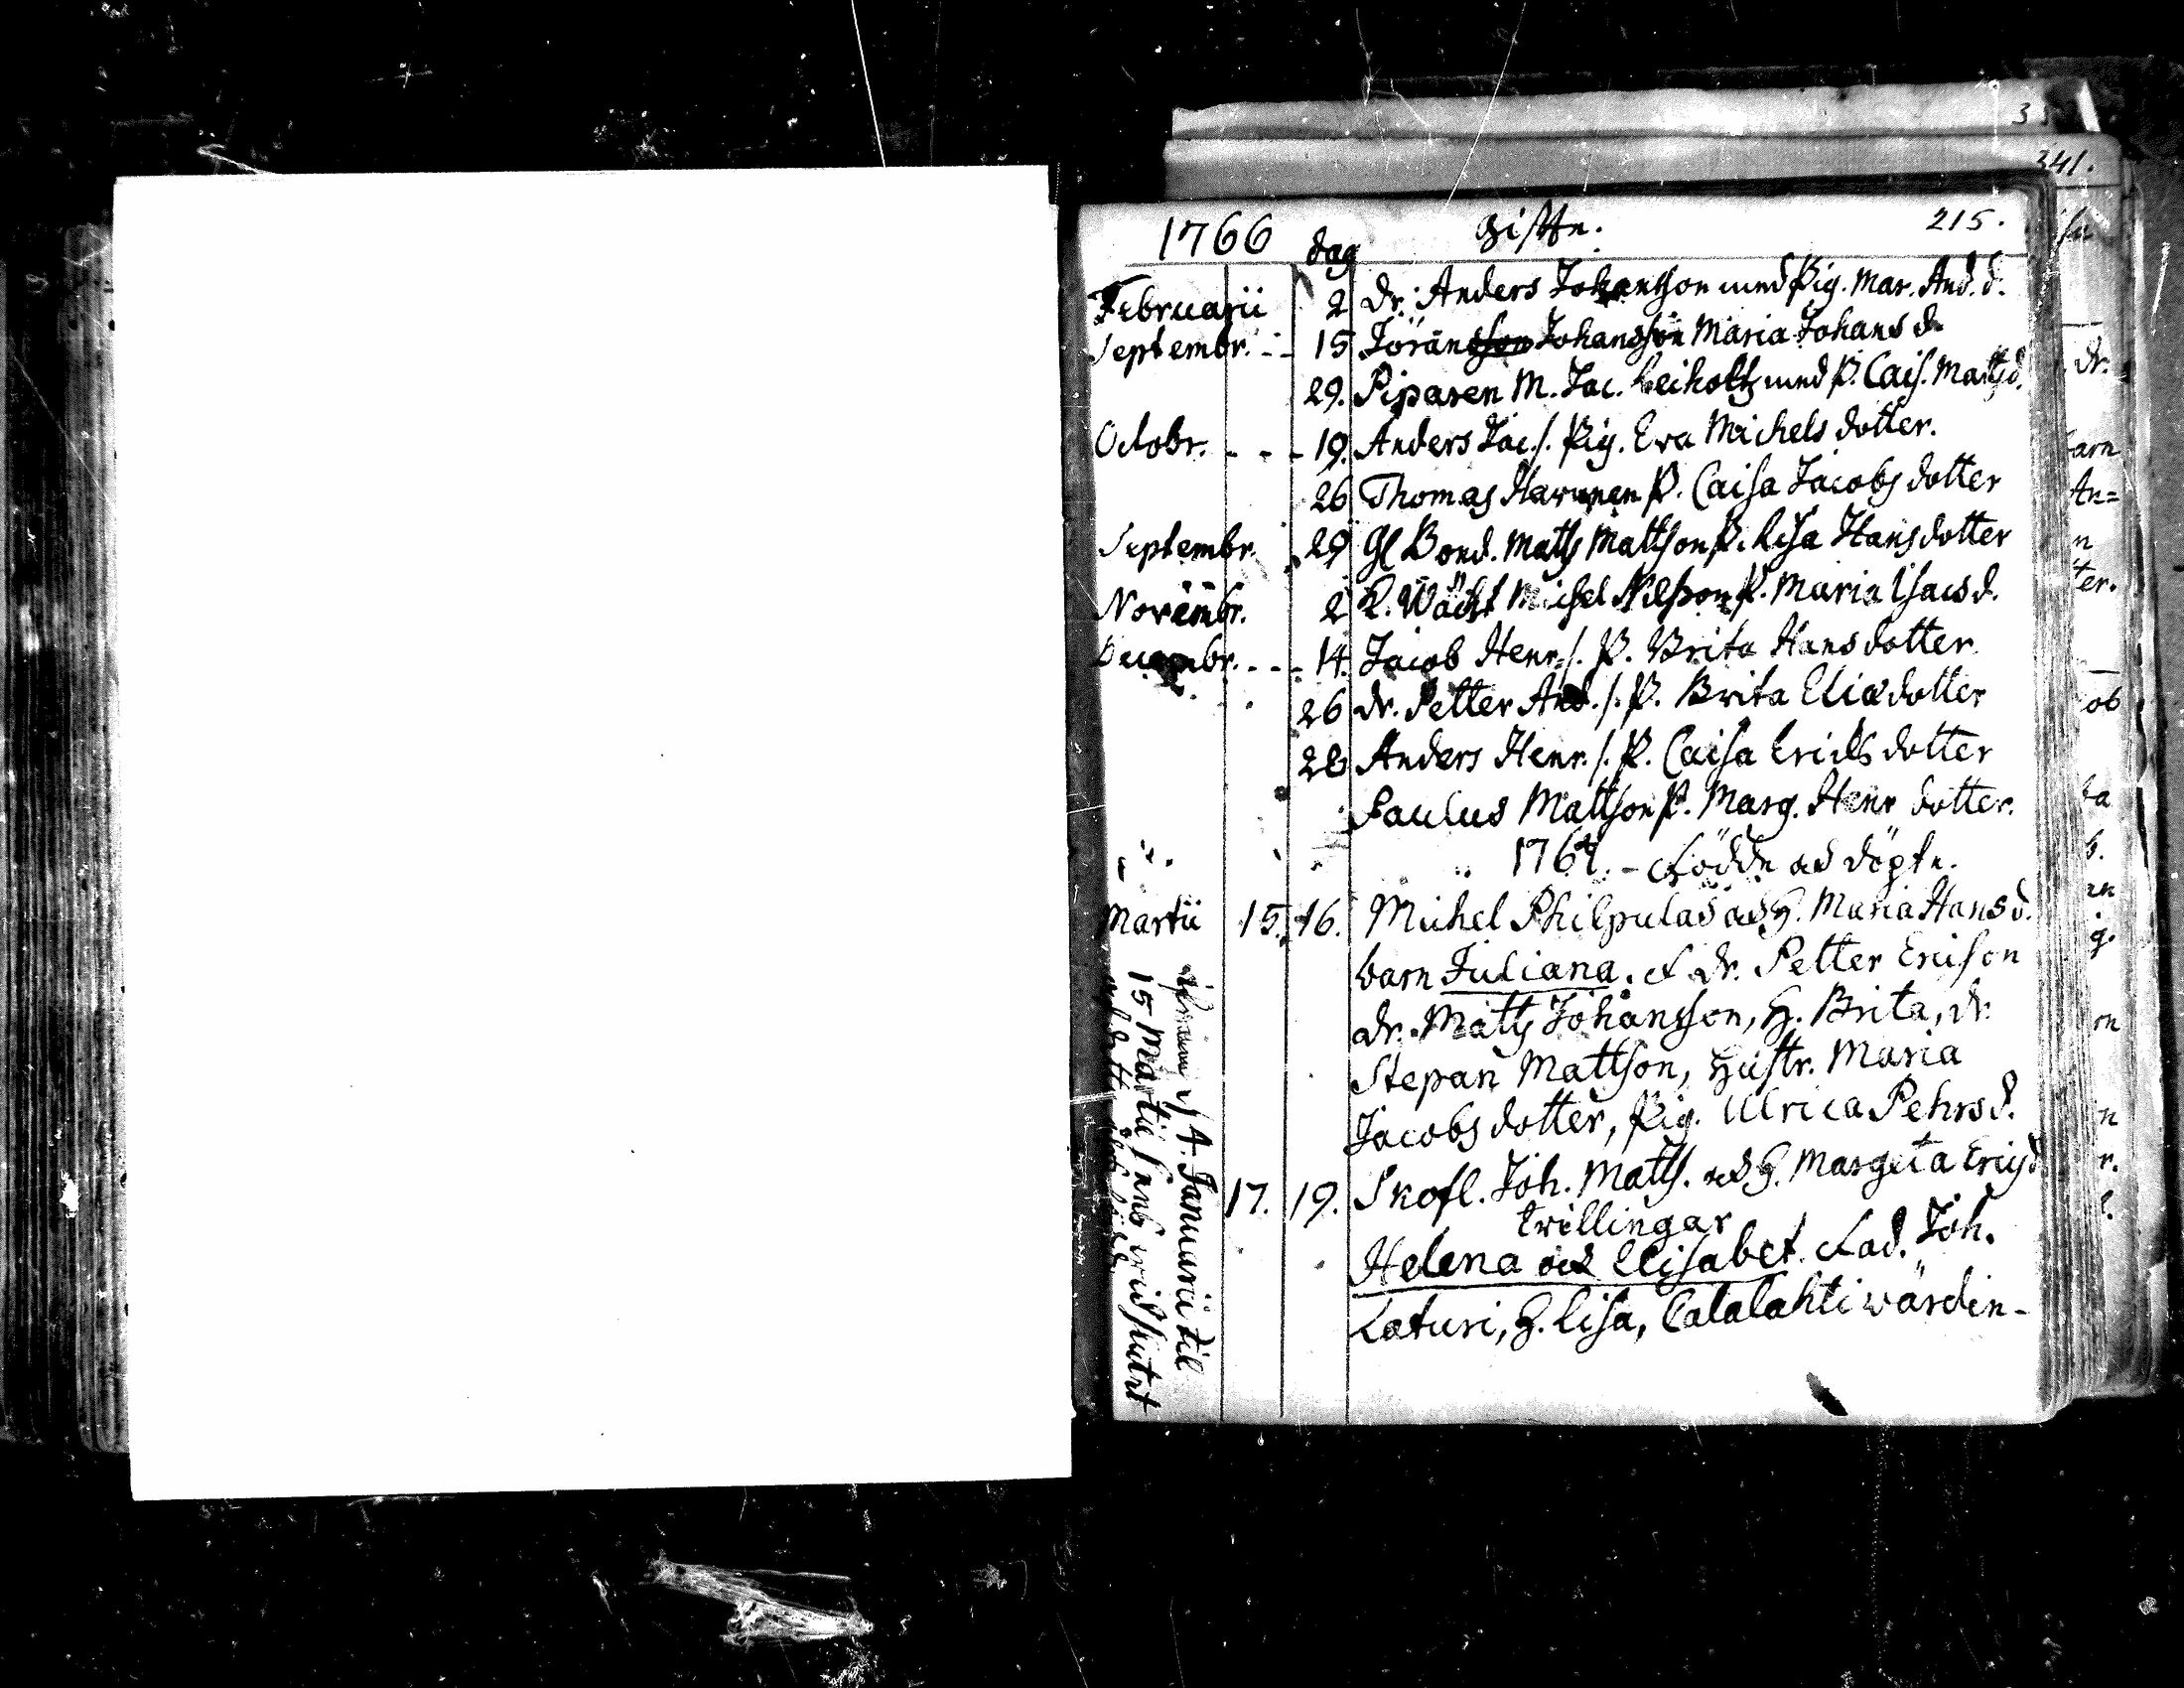 341.
1766 dag Gifte. 215.
Februarii 2 Dr. Anders Johantson med Pig. Mar. And. d.
Septembr. - - 15 Jöransson Johansson Maria Johans d.
29. Piparen M. Jac. Leiholtz med P. Cais. Matsd.
Octobr. - - - 19. Anders Jac. s. Pig. Eva Michels dotter.
26 Thomas P. Caisa Jacobs dotter
Septembr. 29 Gl Bond. Matts Mattson P. Lisa Hansdotter
Novembr. 2 R. Wächt Michel Nilsson P. Maria Isacs d.
Decembr. - - - 14. Jacob Henr. s. P. Brita Hansdotter
26 Dr. Petter And. s. P. Brita Eliædotter
28 Anders Henr. s. P. Caisa Ericks dotter
Paulus Mattson P. Marg. Henr dotter.
1767. - Födde och döpte.
Martii 15. 16. Michel Philpulas och H. Maria Hans d.
barn Juliana. f. Dr. Petter Ericson
Dr. Matts Johansson, H. Brita, Dr.
Stepan Mattson, Hustr. Maria
Jacobs dotter, Pig. Ulrica Pehrs d.
17. 19. Skofl. Joh. Matts. och H. Margeta Erics d
twillingar
Helena och Elisabet. Fad. Joh.
Laturi, H. Lisa, Calalahti wärdin-
ifrån d. 14. Januarii til
15 Martii